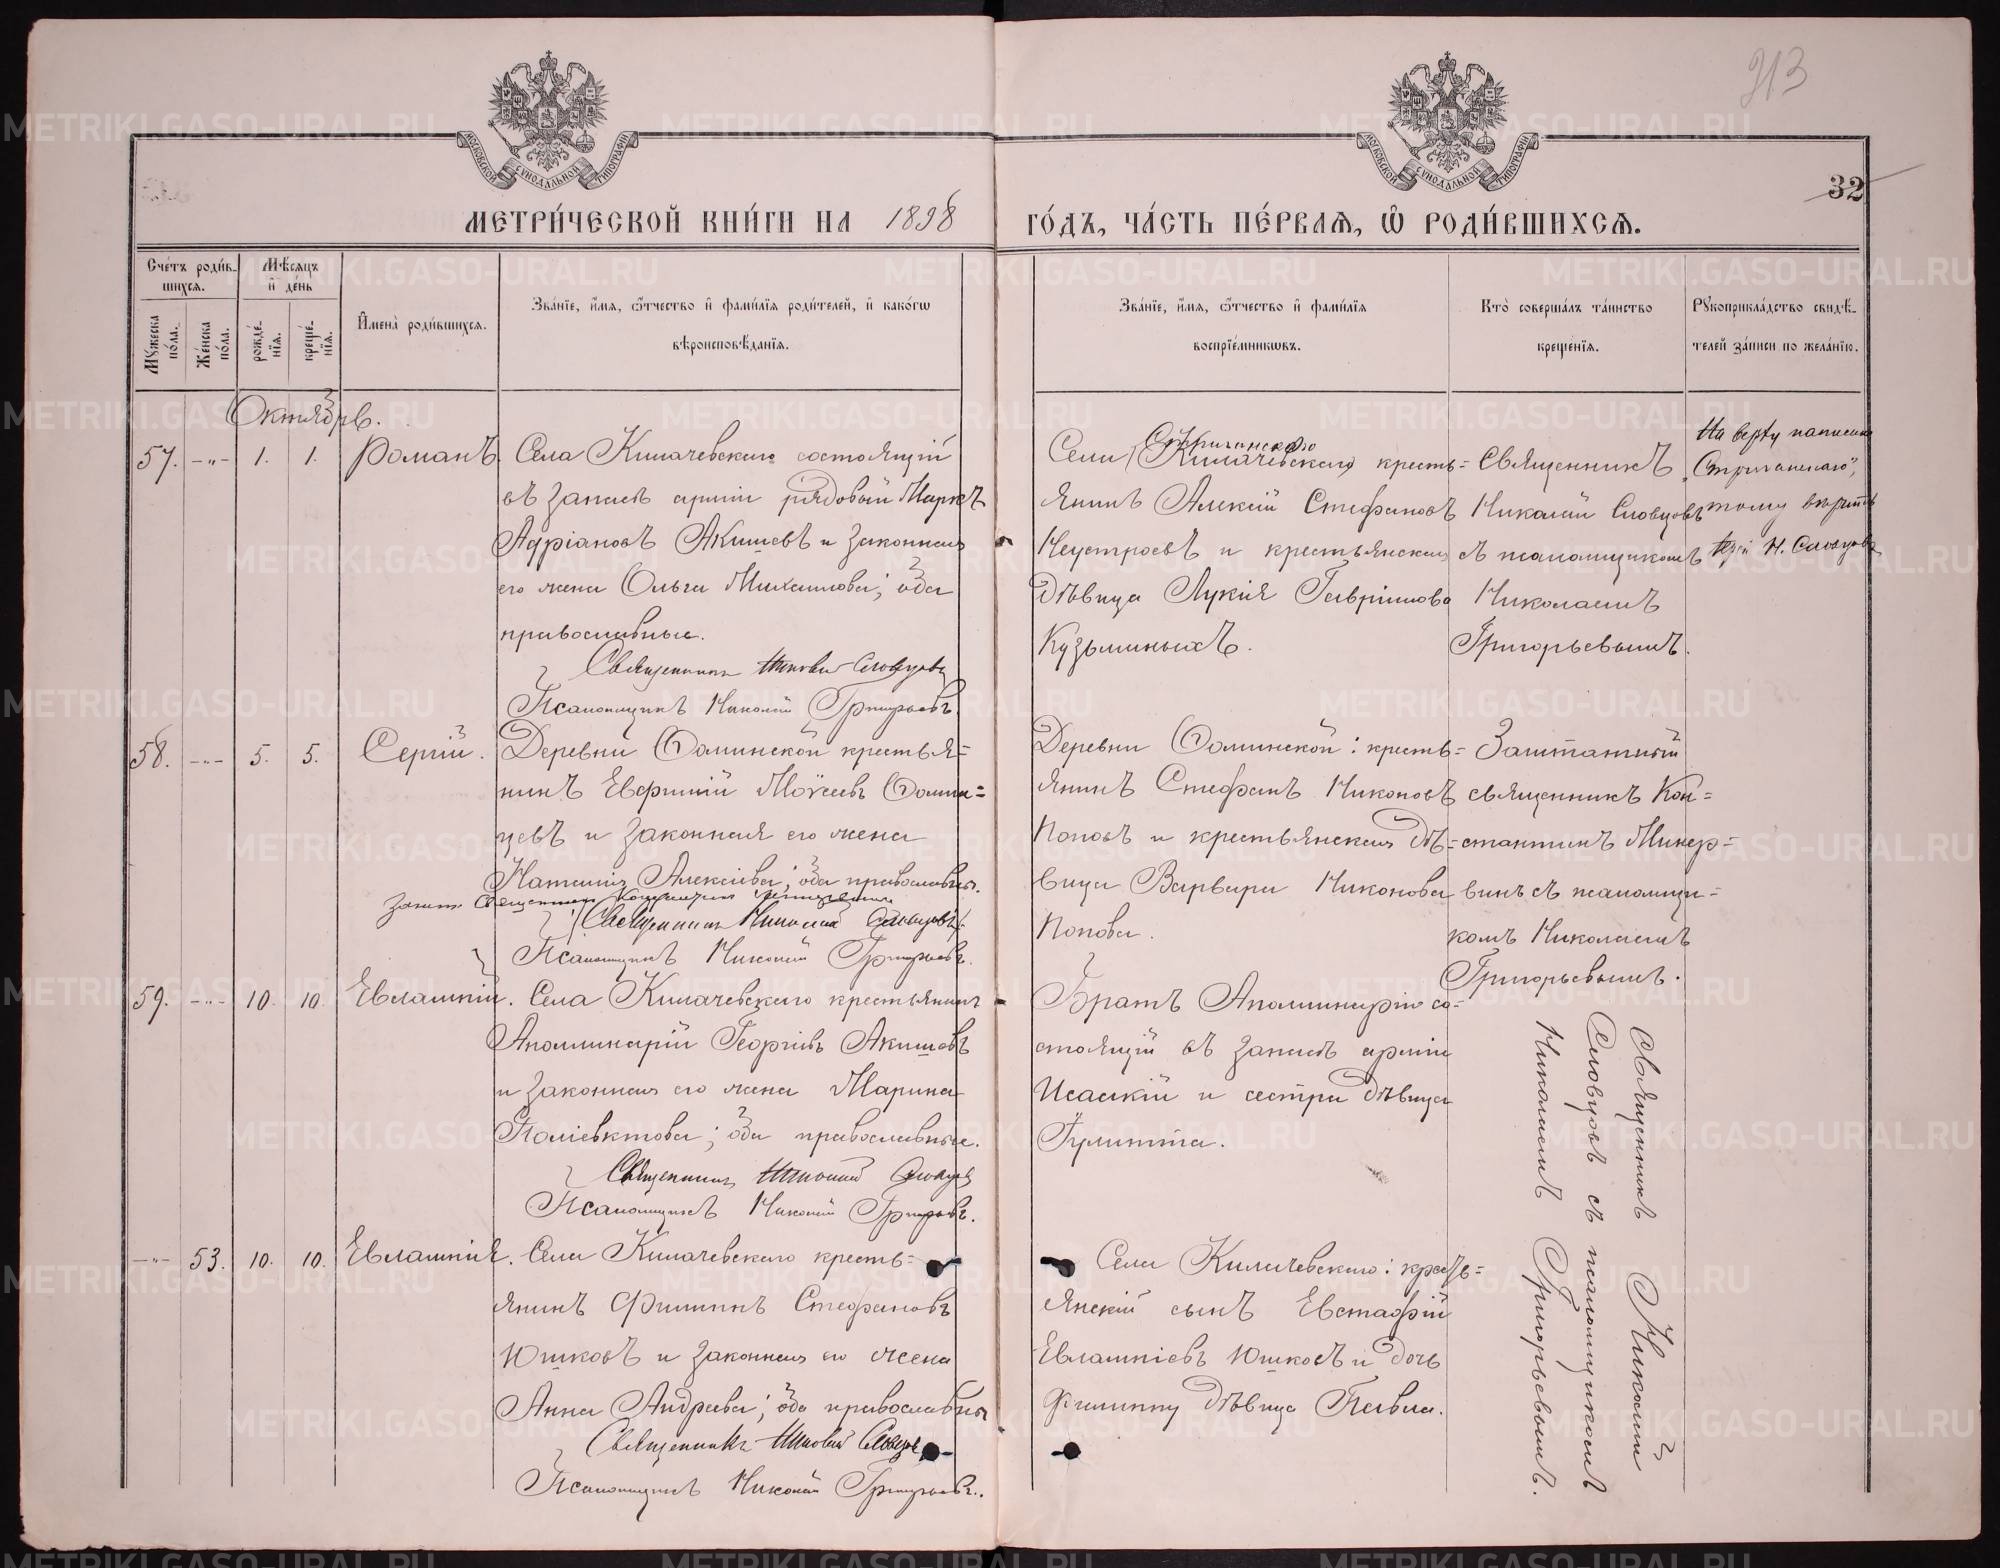 213
32
МЕТРИ́ЧЕСКОЙ КНИ́ГИ НА 1898 ГО́ДЪ, ЧА́СТЬ ПЕ́РВАѦ, Ѿ РОДИ́ВШИХСѦ.
МОСКОВСКОЙ СѴНОДАЛЬНОЙ ТИПОГРАФІИ
МОСКОВСКОЙ СѴНОДАЛЬНОЙ ТИПОГРАФІИ
Сче́тъ роди́в-
шихсѧ.
Мꙋжеска по́ла.
Же́нска по́ла.
Мѣ́сяцъ
и҆ де́нь
рожде́-нїѧ.
креще́-нїѧ.
И҆мена̀ роди́вшихсѧ.
Зва́нїе, и҆́мѧ, ѻ҆́тчество и҆ фами́лїѧ роди́телей, и҆ како́гѡ
вѣроисповѣ́данїѧ.
Зва́нїе, и҆́мѧ, ѻ҆́тчество и҆ фами́лїѧ
воспрїе́мникѡвъ.
Кто̀ соверша́лъ та́инство
креще́нїѧ.
Рꙋкоприкла́дство свидѣ́-
телей за́писи по жела́нїю.
Октябрь.
57. -"- 1. 1. Романъ. Села Килачевскаго состоящій
въ запасѣ арміи рядовый Маркъ
Адріановъ Акишевъ и законная
его жена Ольга Михаилова; оба
православные.
Священникъ Николай Словцовъ
Псаломщикъ Николай Григорьевъ.
Стриганскаго
Села (Килачевскаго) кресть=
янинъ Алексій Стефановъ
Неустроевъ и крестьянская
дѣвица Лукія Гавріилова
Кузьминыхъ.
Священникъ
Николай Словцовъ
съ псаломщикомъ
Николаемъ
Григорьевымъ.
На верху написано
„Стриганскаго",
тому вѣрить
Н. Словцовъ
58. -"- 5. 5. Сергій. Деревни Фоминской крестья=
нинъ Евфимій Моѵсеевъ Фомин=
цевъ и законная его жена
Наталія Алексіева; оба православны.
Заштат. Священникъ Константинъ Минервинъ
Священникъ Николай Словцовъ
Псаломщикъ Николай Григорьевъ.
Деревни Фоминской: кресть=
янинъ Стефанъ Никоновъ
Поповъ и крестьянская дѣ=
вица Варвара Никонова
Попова.
Заштатный
священникъ Кон=
стантинъ Минер=
винъ съ псаломщи=
комъ Николаемъ
Григорьевымъ.
59. -"- 10. 10. Евлампій. Села Килачевскаго крестьянинъ
Аполлинарій Георгіевъ Акишевъ
и законная его жена Марина
Поліевктова; оба православные.
Священникъ Николай Словцовъ
Псаломщикъ Николай Григорьевъ.
Братъ Аполлинарію со=
стоящій въ запасѣ арміи
Исаакій и сестра дѣвица
Іулитта.
Священникъ Николай
Словцовъ съ псаломщикомъ
Николаемъ Григорьевымъ.
-"- 53. 10. 10. Евлампія. Села Килачевскаго кресть=
янинъ Филиппъ Стефановъ
Юшковъ и законная его жена
Анна Андреева; оба православны
Священникъ Николай Словцовъ
Псаломщикъ Николай Григорьевъ.
Села Килачевскаго: кресть=
янскій сынъ Евстафій
Евлампіевъ Юшковъ и дочь
Филиппу дѣвица Павла.
METRIKI.GASO-URAL.RU